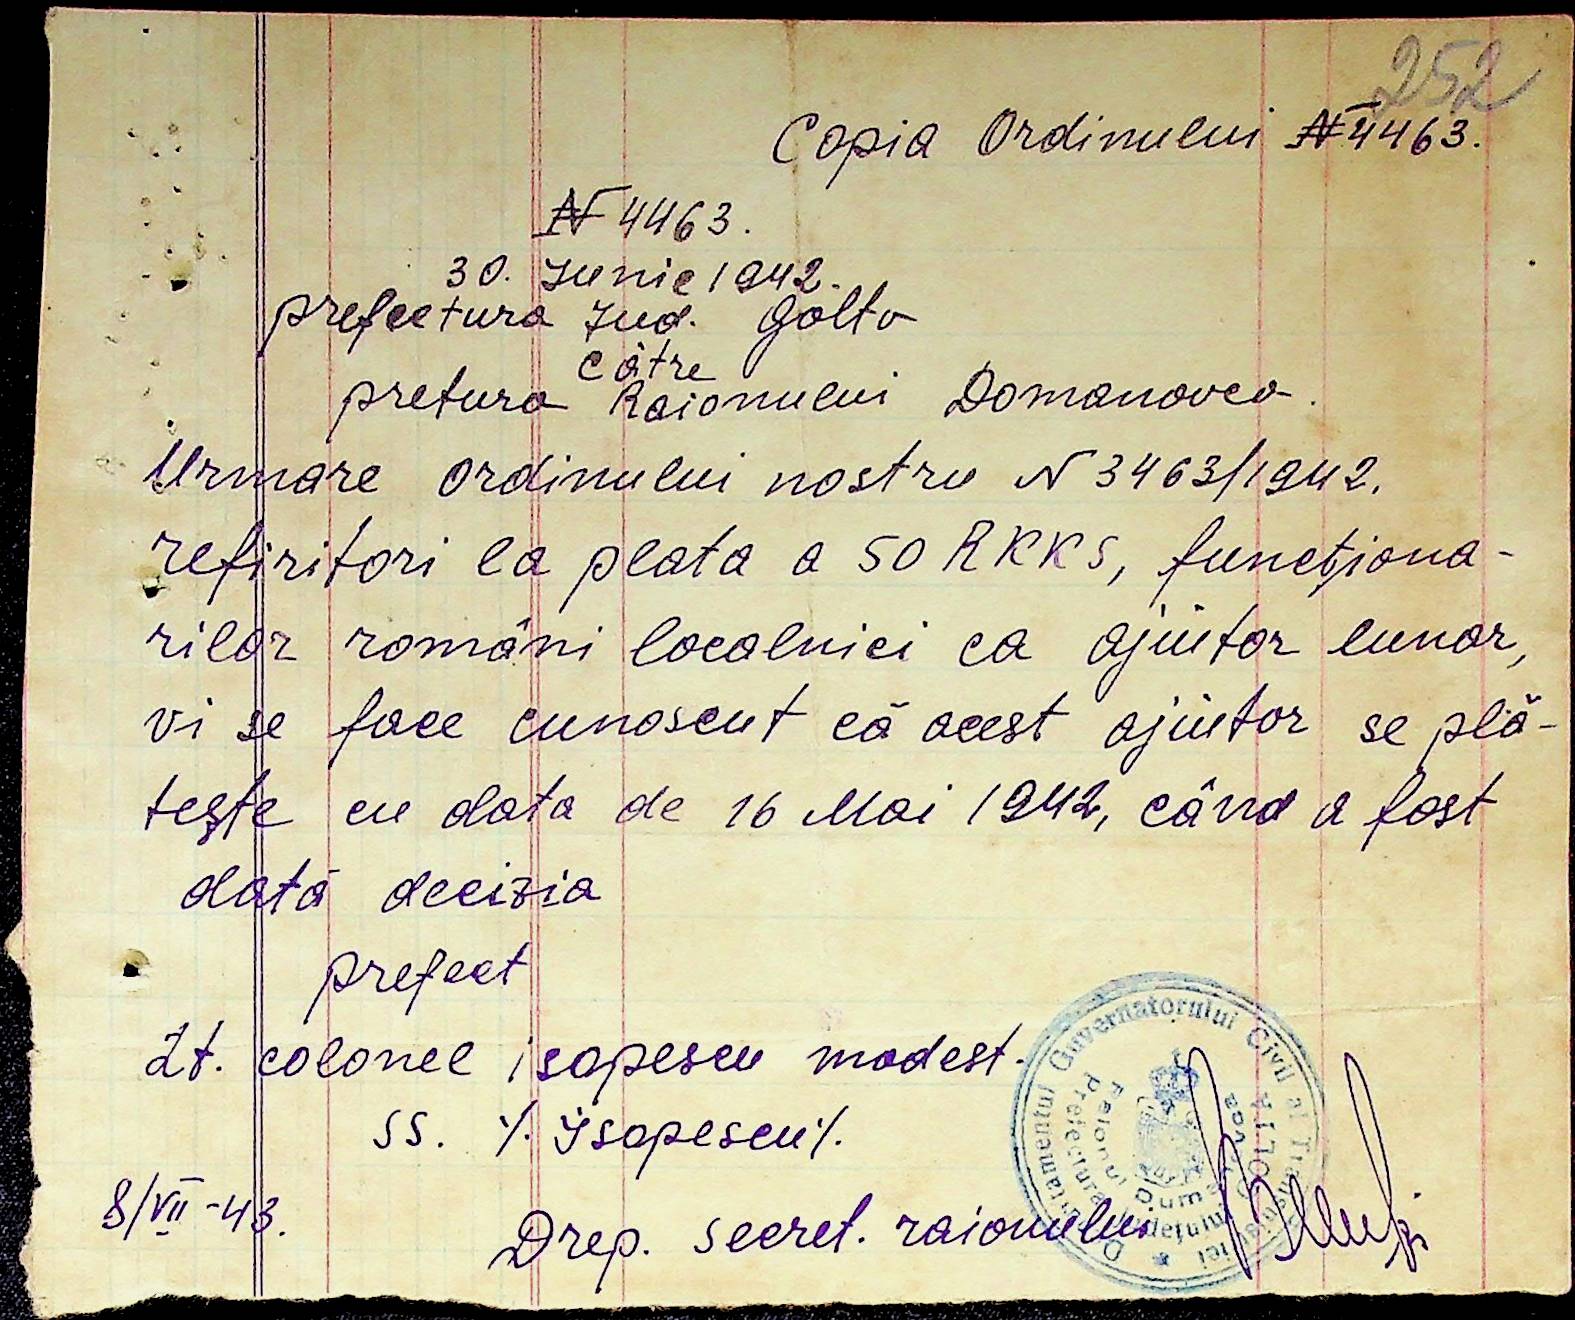 252
Copia Ordinului № 4463.
№ 4463.
30. Iunie 1942.
prefectura Jud. Golta
către
pretura Raionului Domanovca.
Urmare ordinului nostru N 3463/1942.
refiritori la plata a 50 RKKS, funcţiona-
rilor români localnici ca ajutor lunar,
vi se face cunoscut că acest ajutor se plă-
teşte cu data de 16 Mai 1942, când a fost
dată decizia
prefect
Lt. colonel isopescu modest.
SS. ./. Isopescu ./.
8/VII-43.
Drep. secret. raionului
Guvernatorului Civil al
Prefectura Judeţului
GOLTA